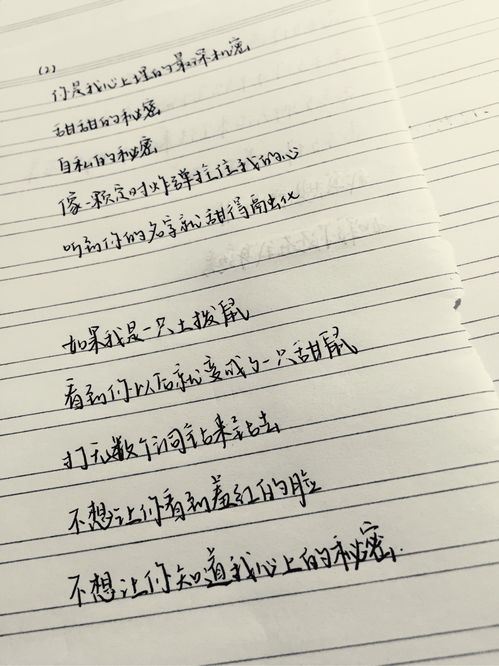 (2)
你是我心上埋的最深机密
甜甜的秘密
自私的秘密
像一颗定时炸弹拴住我的心
听到你的名字就甜得融化
如果我是一只土拨鼠
看到你以后就变成了一只甜鼠
打无数个洞钻来钻去
不想让你看到羞红的脸
不想让你知道我心上的秘密.